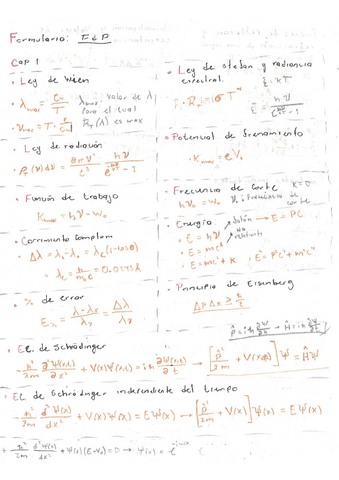 Formulario: E d P
Cap 1
• Ley de Wien
λmax = Cω/T
λmax valor de λ para el cual R_T(λ) es max
• Ley de radiación
ρ_T(ν)dν = 8πν²/c³ · hν/(e^{hν/kT} - 1)
• Función de trabajo
Kmax = hν - W₀
• Corrimiento Compton
Δλ = λ₂ - λ₁ = λc(1 - cosθ)
λc = h/(m₀c) = 0.0243 Å
• % de error
Δλ/λ
• Ley de stefan y radiancia espectral.
R_T = σT⁴
ε = kT
• Potencial de frenamiento
• Kmax = eV₀
• Frecuencia de corte K=0
hν₀ = W₀
ν₀: Frecuencia de corte
• Energía
fotón → E = PC
• E = hν
No
• E = mc²
• E = mc² + K , E² = P²c² + m²c⁴
• Principio de Eisenberg
ΔPΔx ≥ ħ/2
• Ec. de Schödinger
-ħ²/2m ∂²Ψ(x,t)/∂x² + V(x)Ψ(x,t) = iħ ∂Ψ(x,t)/∂t → [p̂²/2m + V(x)]Ψ = ĤΨ
• Ec de Schrödinger independiente del tiempo
-ħ²/2m d²Ψ(x)/dx² + V(x)Ψ(x) = EΨ(x) → [p̂²/2m + V(x)]Ψ(x) = EΨ(x)